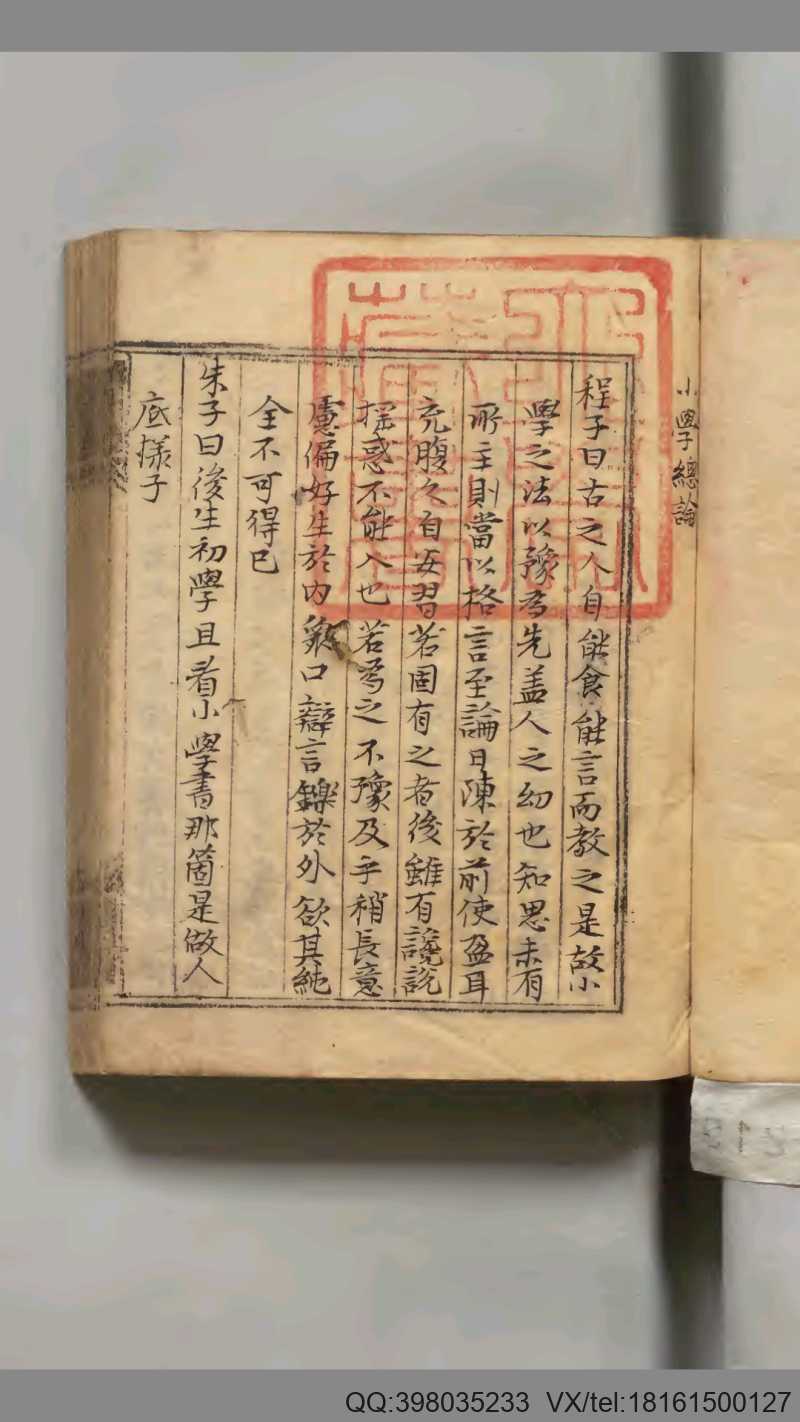 小學總論
程子曰古之人自能食能言而教之是故小
學之法以豫為先盖人之幼也知思未有
所主則當以格言至論日陳於前使盈耳
充腹久自安習若固有之者後雖有讒說
揺惑不能入也若為之不豫及乎稍長意
慮偏好生於内衆口辯言鑠於外欲其純
全不可得已
朱子曰後生初學且看小學書那箇是做人
底樣子
QQ:398035233 VX/tel:18161500127